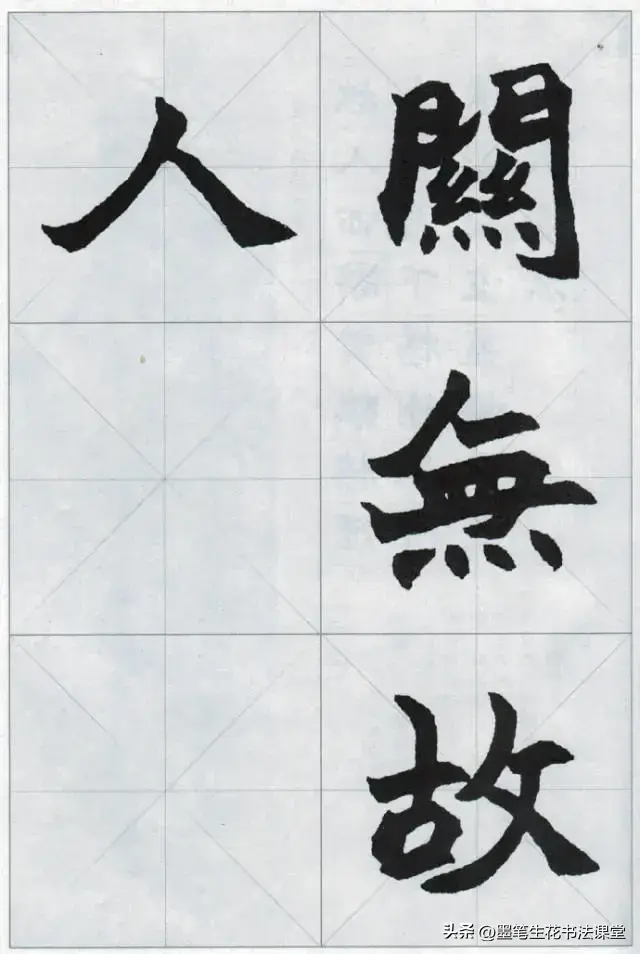 關無故
人
头条 @墨笔生花书法课堂